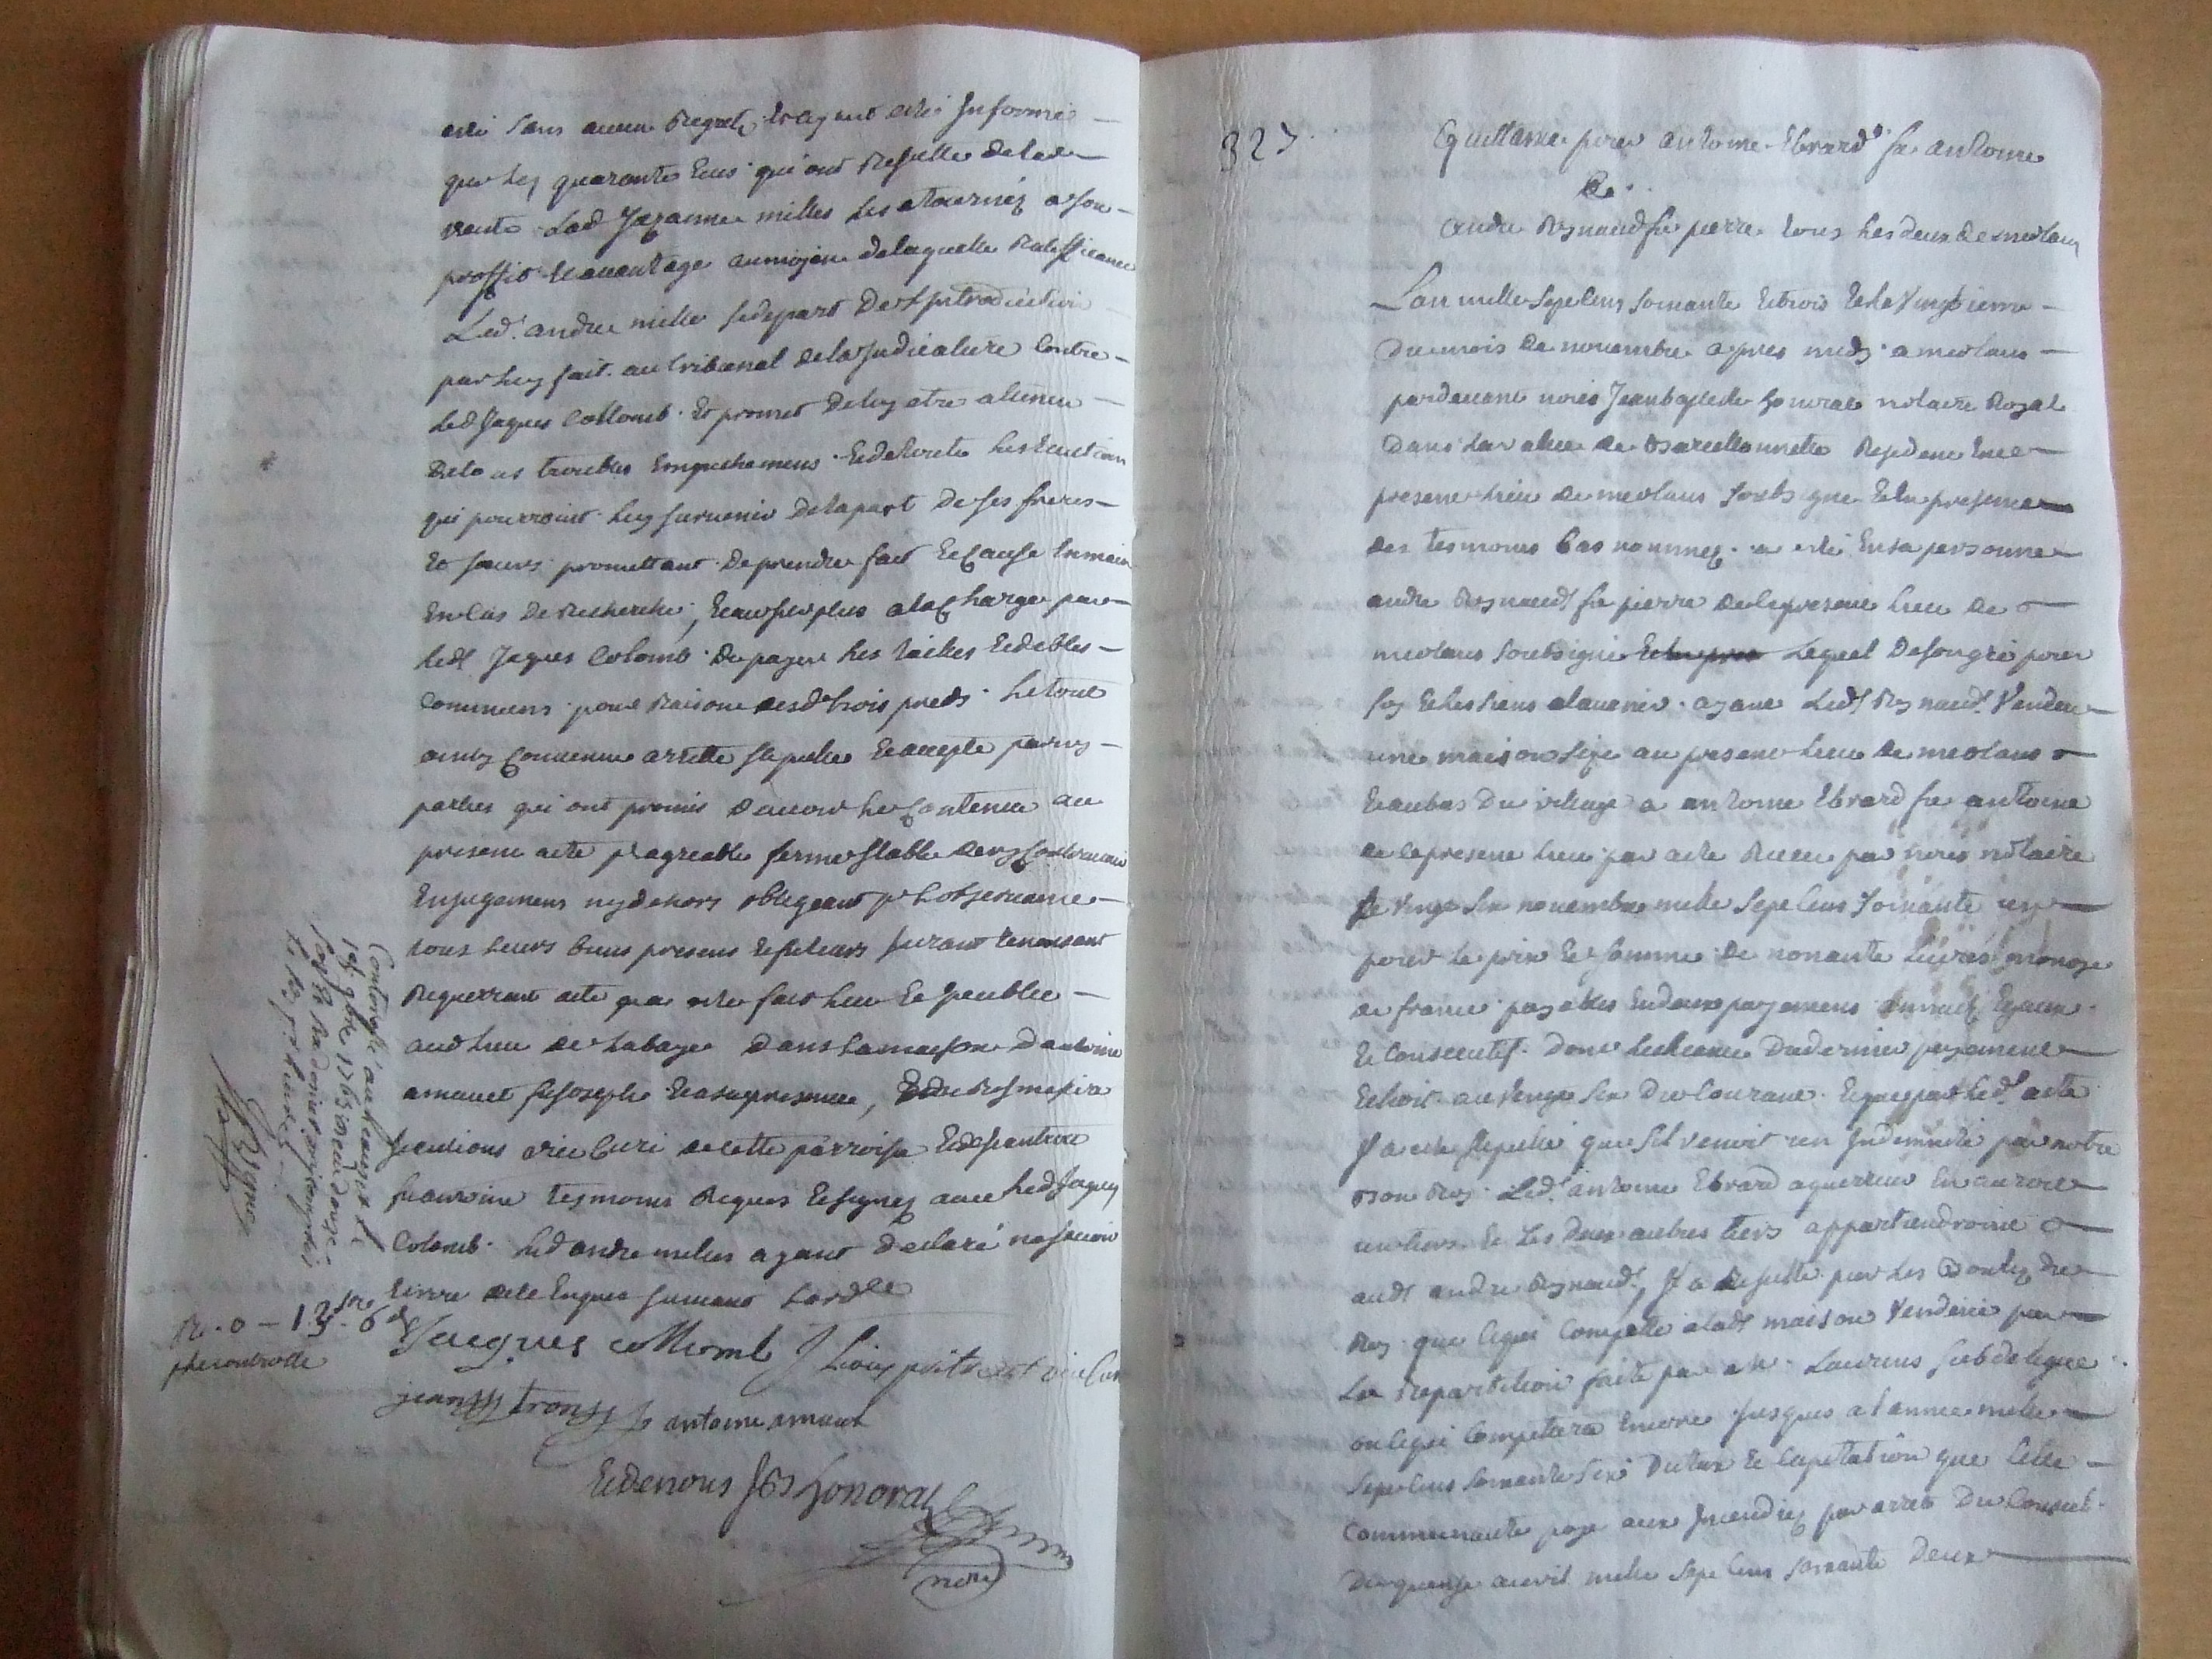 esté sans aucun Regret, et ayant esté Informé
que les quarante Ecus qui ont Resulte de lad
vente Lad Suzanne milles les a tournés a son
proffit et avantage au moyen de laquelle Ratiffication
Led. andre mille se depart de l'Introduction
par luy fait au tribunal de la Judicature Contre
led Jaques Collomb Et promet de luy etre a tenu
de to us troubles Empechemens Et de toute les Eviction
qui pourroint luy survenir de la part de ses freres
Et soeurs promettant de prendre fait Et Cause En main
En Cas de Recherche, Et au surplus a la Charge par
ledt Jaques Colomb de payer les tailles Et debtes
Communs pour Raison desdt trois preds. le tout
ainsy Convenu arretté stipulle Et accepte par les
parties qui ont promis d'avoir le Contenu au
present acte pr agreable ferme stable de n'y Contrevenir
En Jugement ny dehors obligeant pr l'observance
tous leurs biens presens Et futeurs Jurant Renonsant
Requerrant acte qui a este fait leu Et Peublie
aud lieu de Labaye dans la maison D'antoine
arnaud fe Joseph Et a sa presence,
vice Curé de cette parroisse Et de
temoins Requis Et signes avec led Jaques
Colomb. led andre milles ayant declaré ne scavoir
Ecrire de ce Enquis suivant Lordce
Jacques collomb J Louis vice Curé
jean trony J antoine arnaud
Et de nous JB Honorat
notre
Controllé au
9bre 1763
Reçu
R. 0 - 13 s - 6 d
p le controlle
323
Quittance pour antoine Ebrard fe antoine
De
andre Reynaud fe pierre tous les deux de meolans
L'an mille Sept Cens Soixante Et trois Et le Vingtieme
du mois de novembre apres midy a meolans
pardevant nous Jean baptiste Honorat notaire Royal
dans la valee de Barcellonnette Resident En ce
present lieu de meolans soubsigne Et En presence
des tesmoins bas nommes a esté En sa personne
andre Reynaud fe pierre de ce present lieu de
meolans soubsigné Et En pres Lequel de son gré pour
soy Et les siens a l'avenir ayant Ledt Reynaud Vendu
une maison size au present lieu de meolans
Et au bas du village a antoine Ebrard fe antoine
de ce present lieu par acte Receu par nous notaire
le Vingt Six novembre mille Sept Cens Soixante un
pour le prix Et somme de nonante Livres monoye
de france payables En deux payemens annuels Egaux
Et Consecutifs dont l'echeance du dernier payement
Echoit au Vingt Six du Courant Et que par led. acte
Il a este stipulé que s'il venoit un Indemnité par notre
bon Roy Led. antoine Ebrard aquereur En auroit
un tiers Et Les deux autres tiers appartiendroint
audt andre Reynaud, Il a Resulté par les Bontes du
Roy que ce qui Compette a ladt maison Vendue par
La Repartition faite par Mr Laurens subdelegué
ou ce qui Competera Encore Jusques a l'annee mille
Sept Cens Soixante Six du taux Et Capitation que Cette
Communauté paye aux Incendiés par arret du Conseil
du quinze avril mille Sept Cens Soixante Deux